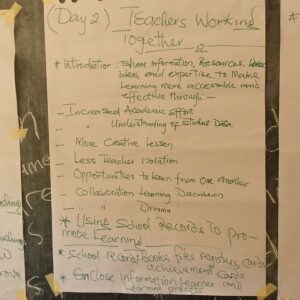 (Day 2) Teachers Working
Together
* Introduction: share Information, Resources, Ideas
Ideas, and expertise, to Make
Learning more accessible and
effective through:-
- Increased Academic effort
" Understanding of Student Data.
- More Creative lesson
- Less Teacher Isolation
- Opportunities to learn from one Another
- Collaboration Learning Discussion
" Drama
* Using School Records To Pro-
mote Learning
* School Recordbooks, files registers, cards
achievement cards
* Enclose Information Learner and
learning process